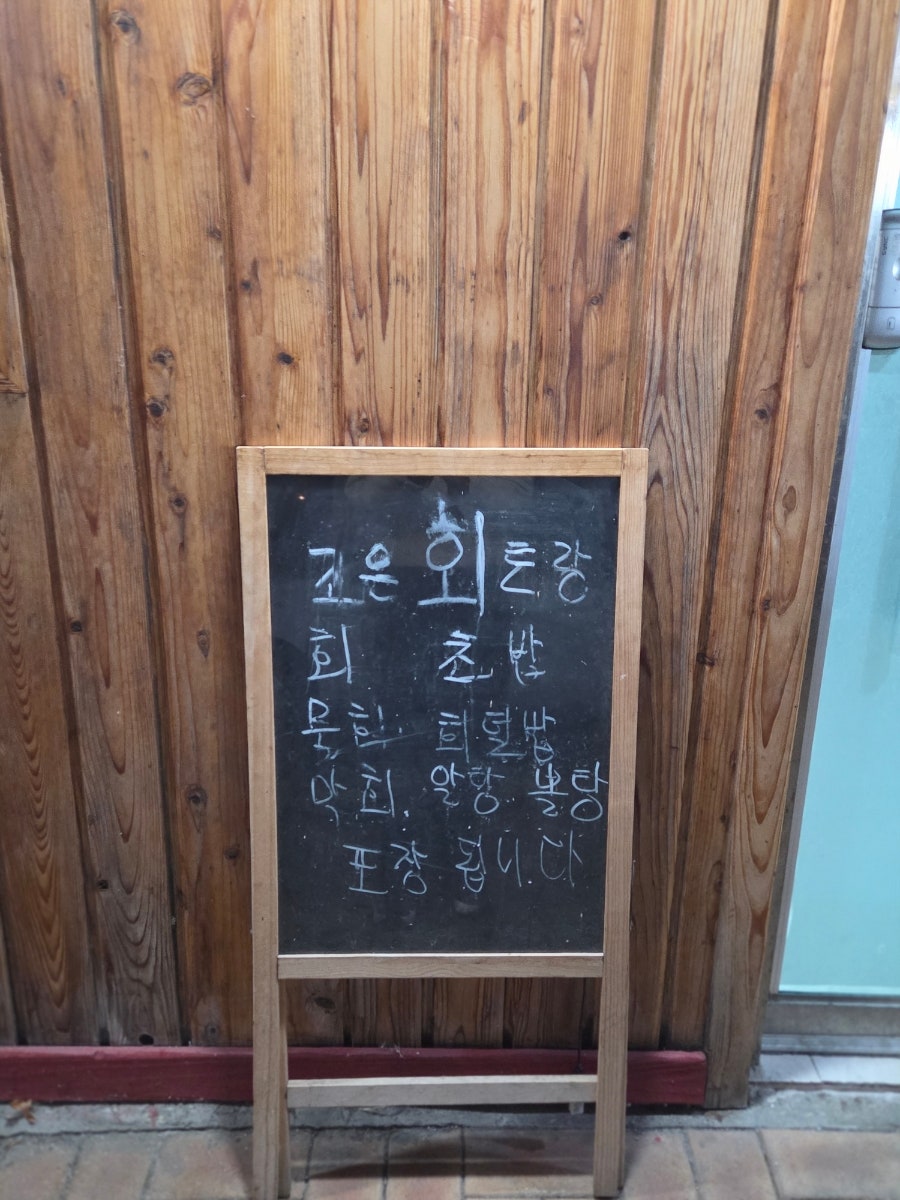 죠은 회 토랑
회 초밥
물회. 회덮밥
막회. 알탕 뽈탕
포장 됩니다